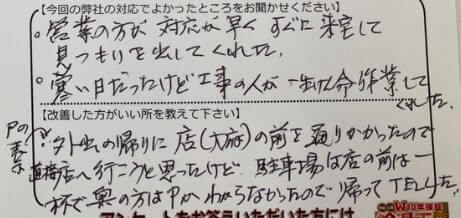 【今回の弊社の対応でよかったところをお聞かせください】
。営業の方が対応が早くすぐに来宅して
見つもりを出してくれた。
。寒い日だったけど工事の人が一生けん命作業して
くれた。
【改善した方がいい所を教えて下さい】
Pの表示
外出の帰りに店(大旅)の前を通りかかったので
直接店へ行こうと思ったけど 駐車場は店の前は一
杯で奥の方はPかわからなかったので帰ってTELした。
10年保証
アンケートにお答えいただいた方には